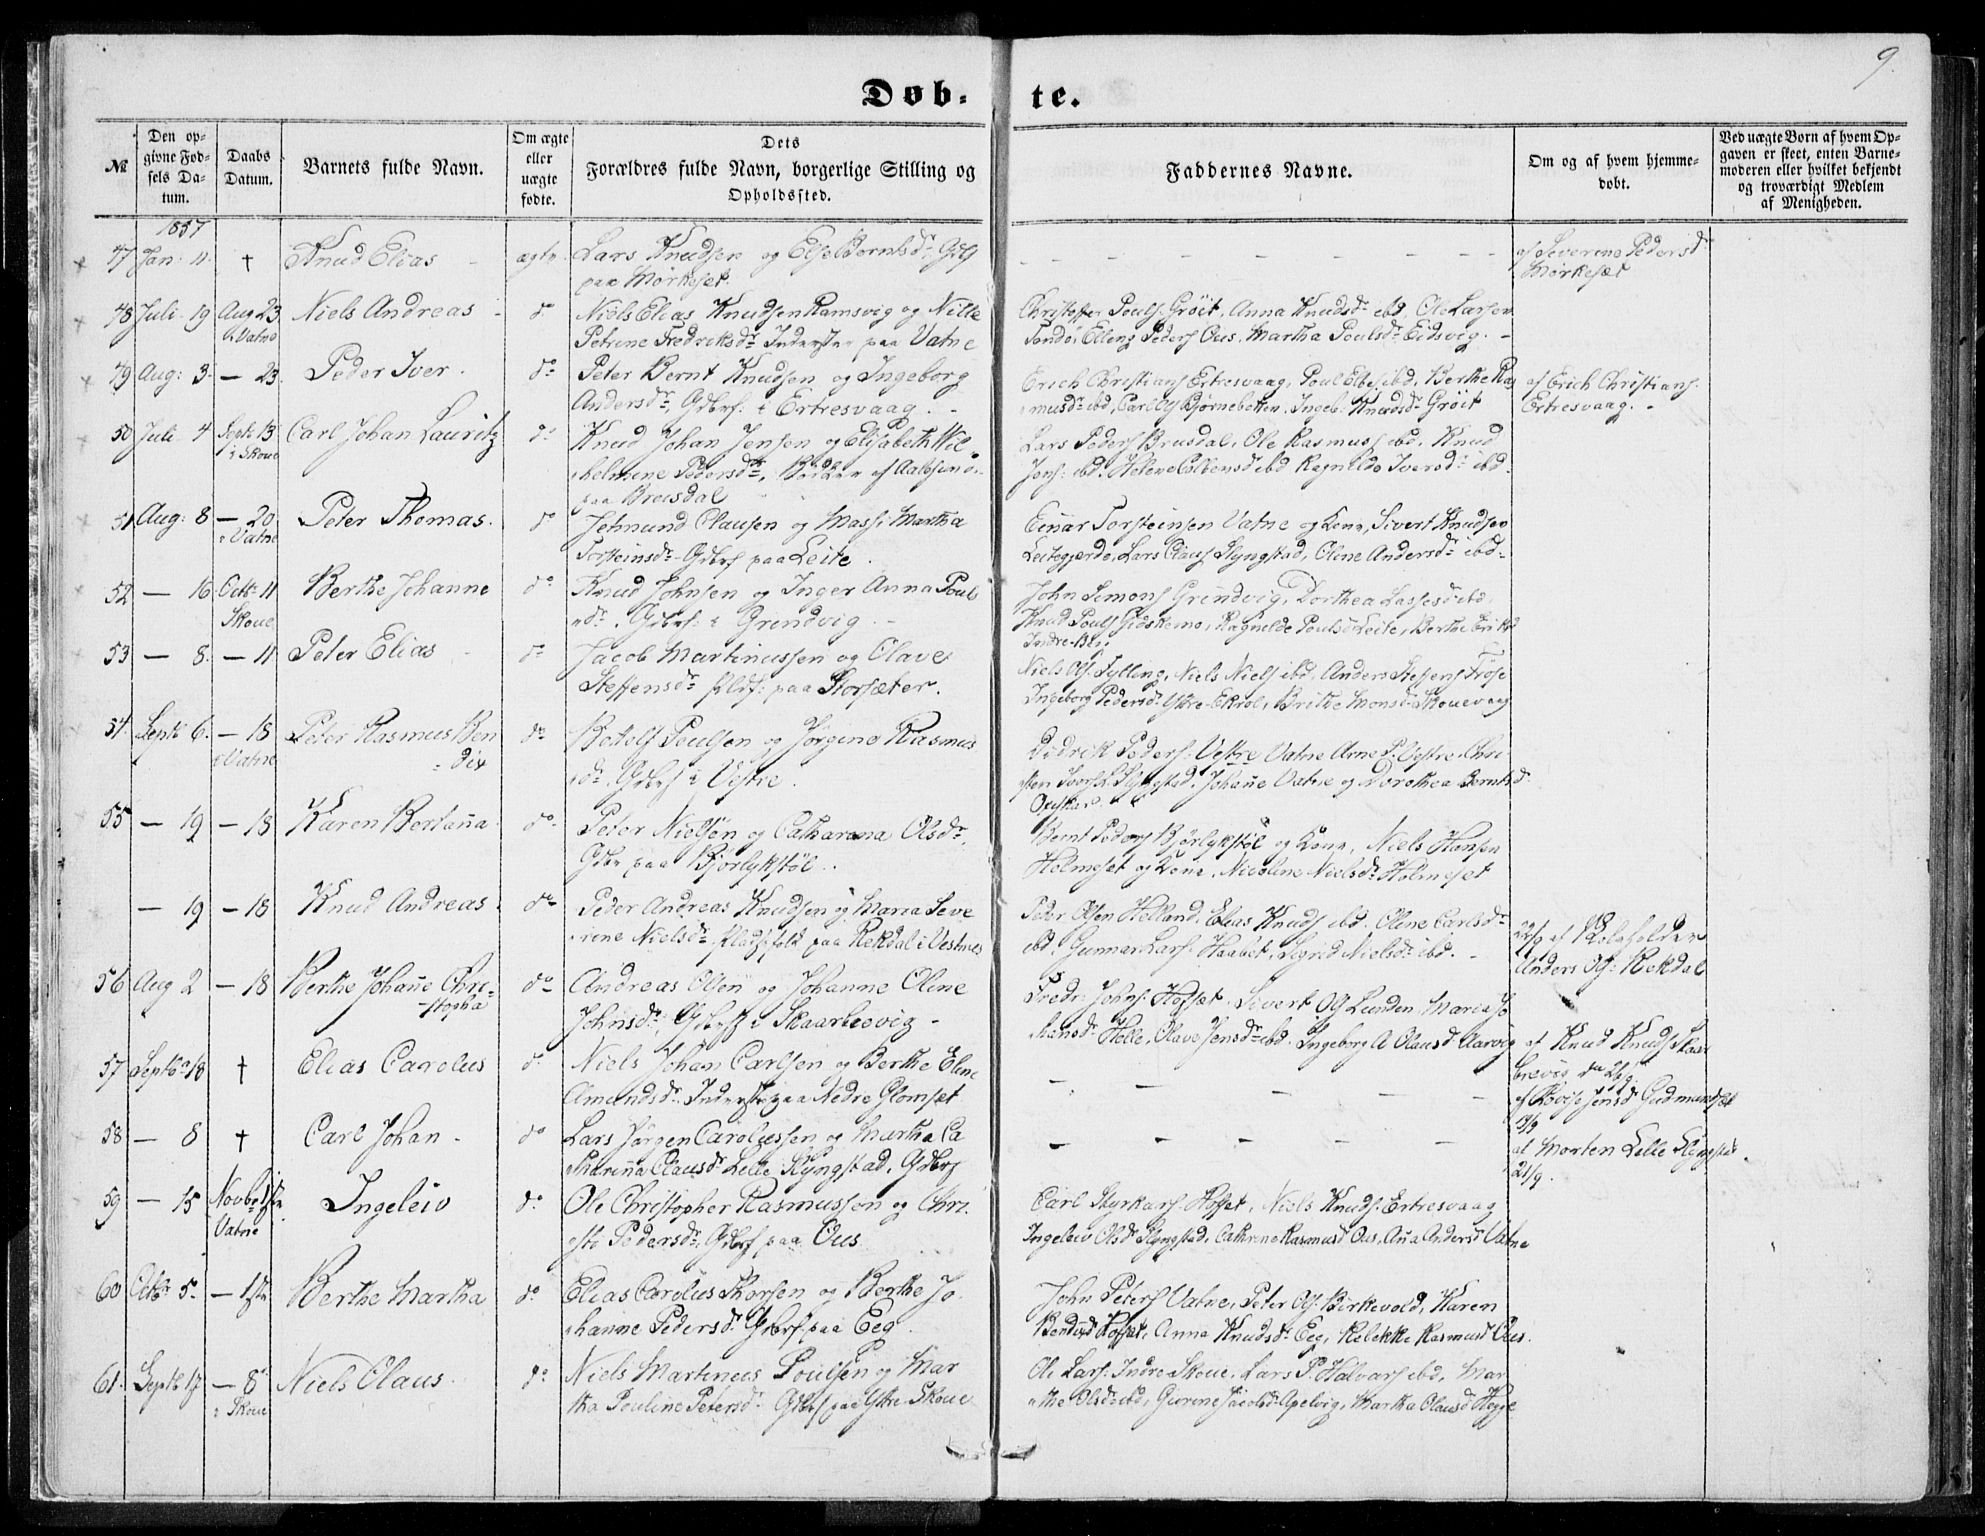 9.
Døb- te.
№
Den opgivne Fødsels Datum.
Daabs Datum.
Barnets fulde Navn.
Om ægte eller uægte fødte.
Dets Forældres fulde Navn, borgerlige Stilling og Opholdssted.
Faddernes Navne.
Om og af hvem hjemmedøbt.
Ved uægte Børn af hvem Opgaven er skeet, enten Barnemoderen eller hvilket bekjendt og troværdigt Medlem af Menigheden.
1857
47 Jan: 4. † Knud Elias - ægte Lars Knudsen og Else Berntsdr Gdf
paa Mørkeset.
- - - - - - - - af Severine Pedersd
Mørkeset
48 Juli 19 Aug 23 Niels Andreas - do Niels Elias Knudsen Ramsvig og Nille
i Vatne Petrine Fredriksdr Inderster paa Vatne
Christoffer Pouls Grøit, Anna Knudsdr ibd, Ole Larsen
Peders Ous, Martha Poulsdr Eidsvig. -
49 Aug: 3. - 23. Peder Iver. do Peter Bernt Knudsen og Ingeborg
Andersdr, Gdbrf: i Ertresvaag. -
Erich Christians Ertresvaag, Poul ibd, Berthe Ras
musdr ibd, Carl Ols Bjørnebotten. Ingeb: Knudsdr Grøit
af Erich Christians:
Ertresvaag. -
50 Juli 4 Sept: 13 Carl Johan Lauritz do Knud Johan Jensen og Elisabeth Wil-
i Skoue helmine Pedersdr, af Aalesund
paa Brusdal
Lars Peders Brusdal, Ole Rasmuss ibd, Knud
Jens: ibd. Helene ibd Ragnilde Iversdr ibd.
51 Aug: 8 - 20 Peter Thomas. do Jetmund Clausen og Massi Martha
i Vatne Torsteinsdr Gdbrf paa Leite.
Einar Torsteinsen Vatne og Kone, Sivert Knudsen
Leitegjerde, Lars Claus Slyngstad, Oline Andersdr ibd.
52 - 16 Octb: 11 Berthe Johanne do Knud Johnsen og Inger Anna Pouls
Skoue dr. Gdbrf: i Grendvig. -
John Simons Grindvig, Dorthea Lassesd ibd,
Knud Pouls Gidskemo, Ragnilde Poulsd Leite, Berthe
Indre-
53 - 8. - 11 Peter Elias - do Jacob Martinussen og Olave
Steffensdr paa Storsæter.
Niels Ols: Tylling, Niels Niels ibd, Anders Steffens
Ingeborg Pedersdr Ystre-Ekrol, Brithe Monsd Skouevaag
54. Septb 6. - 18 Peter Rasmus Ben do Botolf Poulsen og Jørgine Rasmus
i Vatne dix dr. Gdbrf i Vestre.
Didrik Peders: Vestre Vatne Arne P. Vestre, Chri
sten Ivers L. Slyngstad, Johane Vatne og Dorothea Berntsd
Opskar
55 - 19 - 18 Karen Bertana do Peter Nielsen og Catharena Olsdr,
Gdbr paa Bjørlykstøl.
Bernt Peders Bjørlykstøl og Kone, Niels Hansen
Holmeset og Kone, Nicoline Nielsdr Holmeset
- 19 - 18 Knud Andreas. do Peder Andreas Knudsen og Maria Seve
rine Nielsdr Pladsfolk paa Rekdal i Vestnes
Peder Olsen Helland, Elias Knuds ibd. Oline Carlsdr
ibd, Gunnar Lars: Haabet, Sigrid Nielsdr ibd. -
22/9 af Skoleholder
Anders Ols: Rekdal
56 Aug 2 - 18 Berthe Johane Chri- do Andreas Olsen og Johanne Oline
stopha Johnsdr, Gdbrf i Skaarbrevig -
Fredr: Johns: Hofset. Sivert Ols Lunden, Maria Jo
hansdr Helle, Olave Jensdr ibd. Ingeborg A Olausd Aarvig
af Knud Knuds Skaar
brevig dn 26/9
57 Septbr 18 † Elias Carolus do Niels Johan Carlsen og Berthe Eline
Amundsdr Inderster paa Nedre Glomset
- - - - -
af Lovise Jensd Gudmundset
19/9
58 - 8 † Carl Johan - do Lars Jørgen Carolussen og Martha Ca
tharina Clausdr Lille Slyngstad, Gdbrf
- - - - -
af Morten Lille Slyngstad.
21/9.
59 - 15 Novbr 1ste Ingeleiv do Ole Christopher Rasmussen og Chri
Vatne sti Pedersdr, Gdbrf paa Ous
Carl Styrkars: Hofset, Niels Knuds: Ertresvaag
Ingeleiv Olsd Slyngstad, Cathrine Rasmusd Ous, Ana Andersd Vatne
60 Octbr 5. - 1ste Berthe Martha do Elias Carolus Thorsen og Berthe Jo
hanne Pedersdr Gdbrf paa Eeg.
John Peters Vatne, Peter Ols Birkevold, Karen
Hofset, Anna Knudsdr Eeg, Rebekke Rasmusd Ous.
61. Septb 17 - 8de Niels Olaus. do Niels Martinus Poulsen og Mar
i Skoue tha Pouline Petersdr Gdbrf paa Ystre-Skoue
Ole Lars: Indre Skoue, Lars P. Halvars ibd, Mar
the Olsdr ibd, Gurine Jacobsdr Apelvig, Martha Olausd Hegge